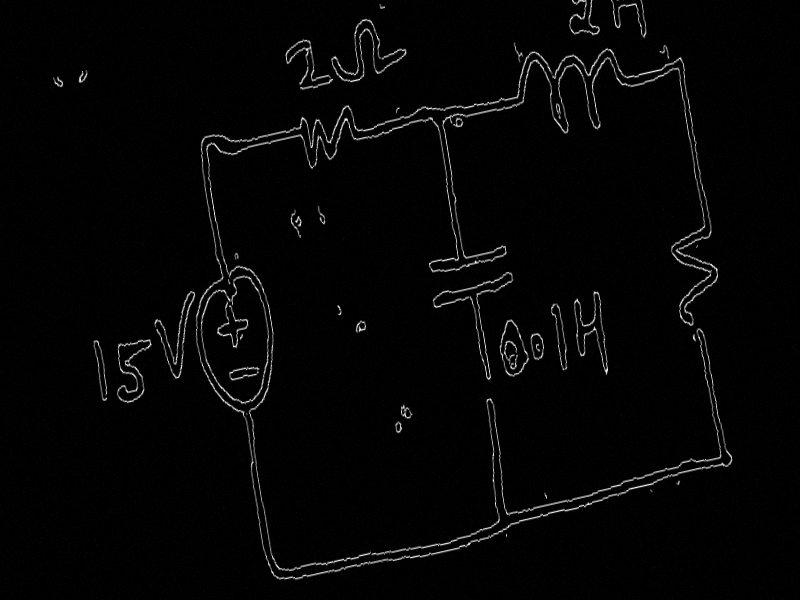 2Ω
15V
+
-
0.1H